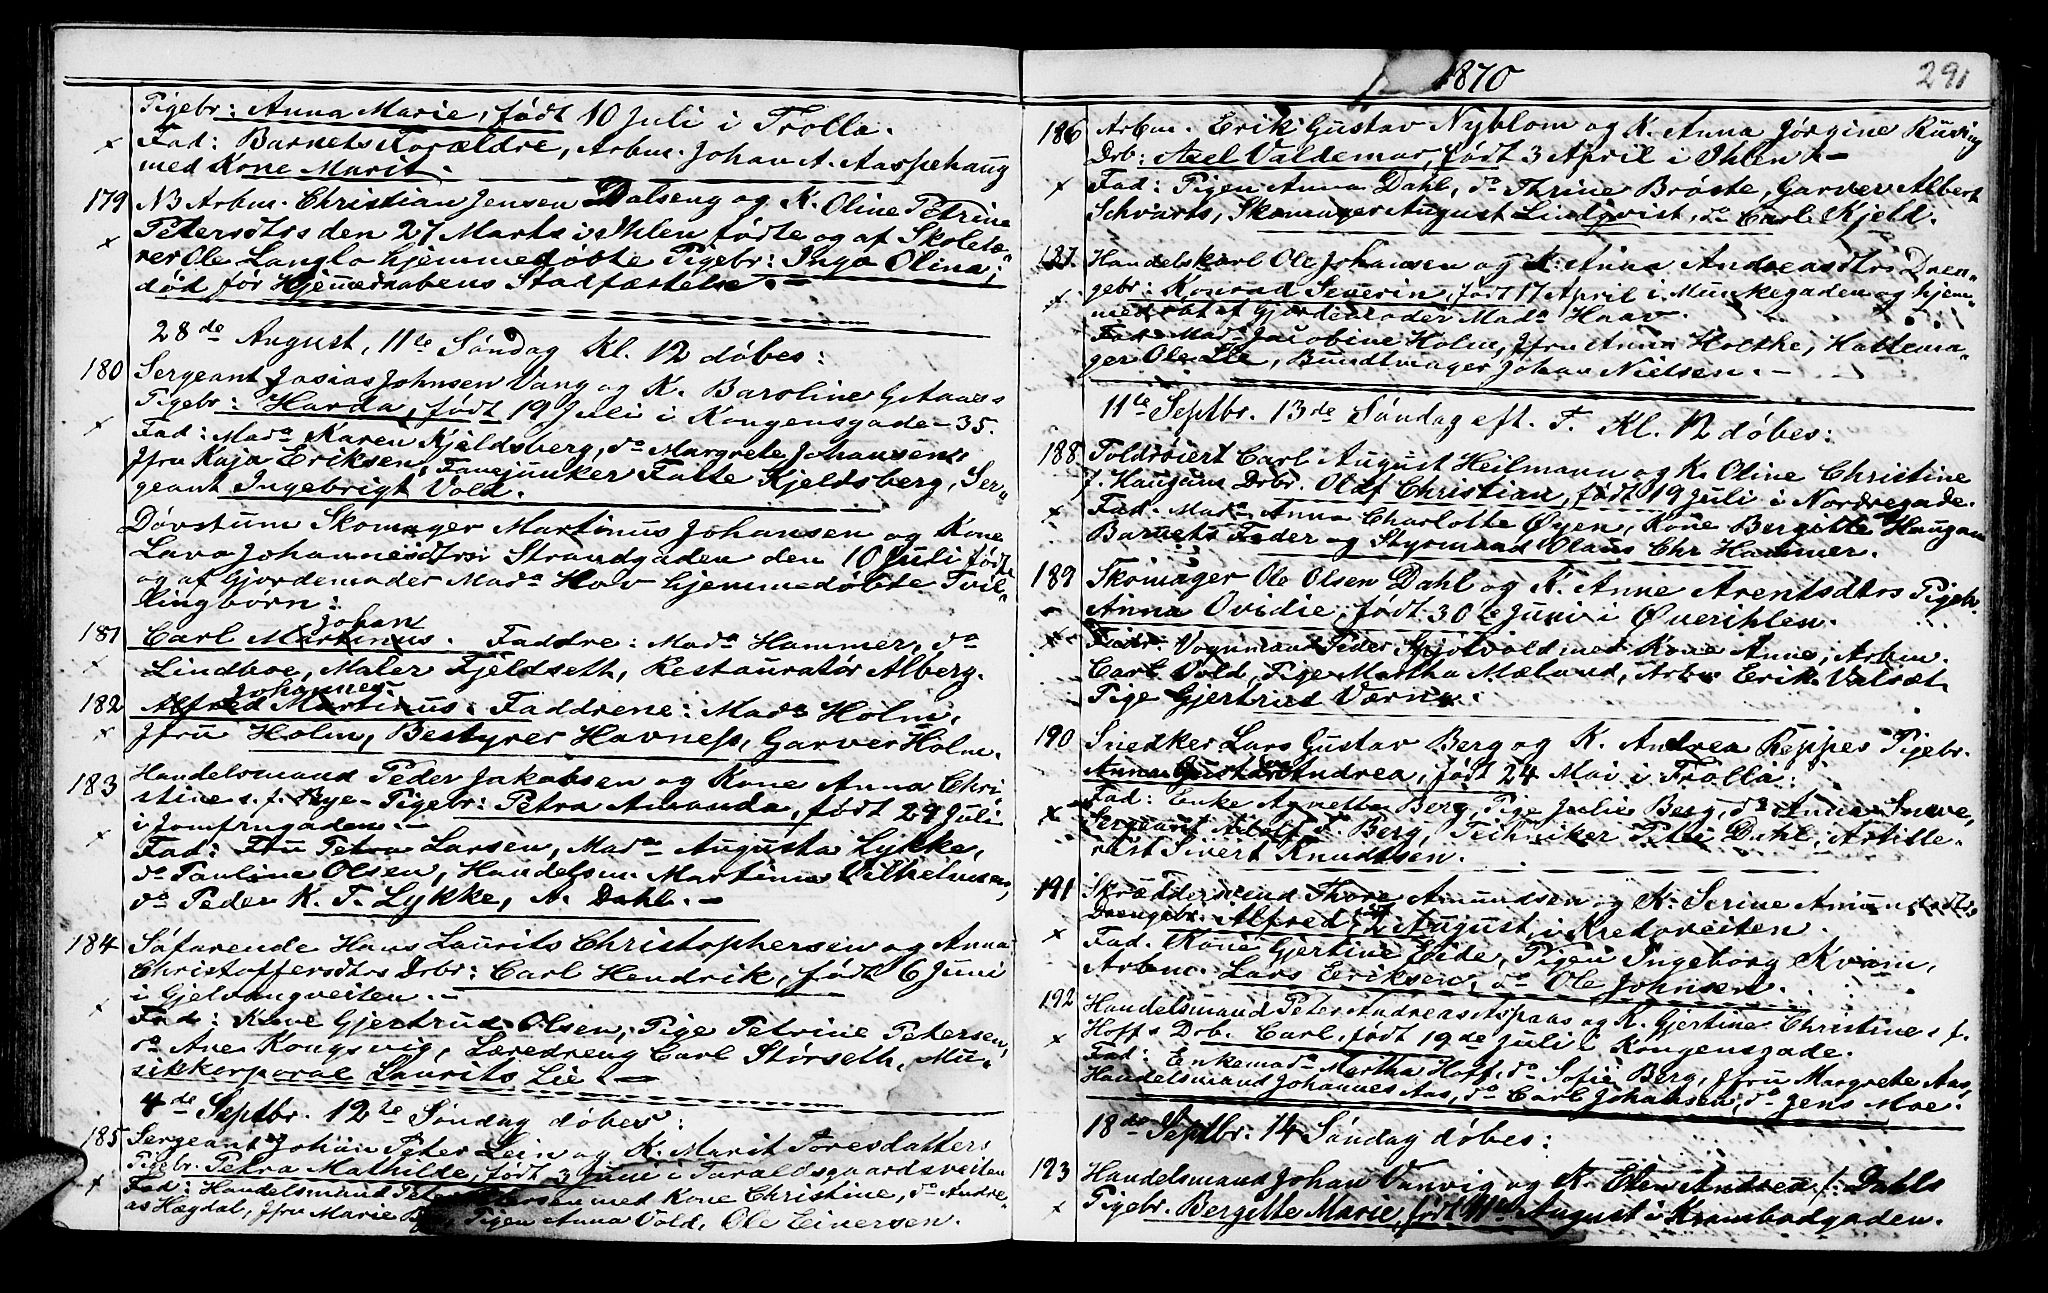 Pigebr: Anna Marie, født 10 Juli i Trolla.
Fad: Barnets Forældre, Arbm. Johan A. Aaspehaug
med Kone Marit.
179 NB Arbm. Christian Jensen Dalseng og K. Oline Petrine
Petersdtrs den 27 Marts i Ihlen fødte og af Skolelæ-
rer Ole Langlo hjemmedøbte Pigebr: Inga Olina;
død før Hjemmedaabens Stadfæstelse.
28de August, 11te Søndag Kl. 12 døbes:
180 Sergeant Josias Johnsen Vang og K. Baroline G. Aaas
Pigebr: Harda, født 19 Juli i Kongensgade 35.
Fad: Mad. Karen Kjeldsberg, do Margrete Johansen,
Jfru Kaja Eriksen, Fanejunker Falte Kjeldsberg, Ser-
geant Ingebrigt Vold.
Døvstum Skomager Martinus Johansen og Kone
Lava Johannesdtrs i Strandgaden den 10 Juli fødte
og af Gjordemoder Mad. Hov hjemmedøbte Tvil-
lingbørn:
Johan
181 Carl Martinus. Faddre: Mad. Hammer, do
Lindboe, Maler Fjeldseth, Restauratør Alberg.
Johannes
182 Alfred Martinus. Faddrene: Mad. Holm,
Jfru Holm, Bestyrer Havness, Garver Holm.
183 Handelsmand Peder Jakobsen og Kone Anna Chri
stine s. f. Bye - Pigebr: Petra Amanda, født 29 Juli
i Jomfrugaden.
Fad: Fru Petra Larsen, Mad. Augusta Lykke,
do Pauline Olsen, Handelsm. Martinus Vilhelmsen,
do Peder K. F. Lykke, A. Dahl.
184 Søfarende Hans Laurits Christophersen og Anna
Christoffersdtrs Drbr: Carl Hendrik, født 6 Juni
i Gjelvangveiten.
Fad: Kone Gjertrud Olsen, Pige Petrine Petersen,
do Ane Kongsvig, Læredreng Carl Størseth, Mu-
sikkorporal Laurits Lie.
4de Septbr. 12te Søndag døbes:
185 Sergeant Johan Peter Lein og K. Marit Toresdatters
Pigebr. Petra Mathilde, født 3 Juni i Taraldsgaardsveiten
Fad: Handelsmand Peter Petersen med Kone Christine, do Andre-
as Hægdal, Jfru Marie Pigen Anna Vold, Ole Einersen.
1870
291
186 Arbm. Erik Gustav Nyblom og K. Anna Jørgine Ruving
Drb: Axel Valdemar, født 3 April i Ihlen
Fad: Pigen Anna Dahl, do Thrine Brøste, Garver Albert
Schvarts, Skomager August Lindqvist, do Carl Kjeld.
187. Handelskarl Ole Johansen og K. Anna Andreasdtrs Dren-
gebr: Konrad Severin, født 17 April i Munkegaden og hjem-
medøbt af Gjordemoder Mad. Haav.
Fad: Mad. Jacobine Holm, Jfru Anna Holthe, Hattema-
ger Ole Lle, Bundtmager Johan Nielsen.
11te Septbr. 13de Søndag eft. T. Kl. 12 døbes:
188 Toldrøiert Carl August Heilmann og K. Oline Christine
f. Haugans Drbr. Olaf Christian, født 19 Juli i Nordregade.
Fad. Mad. Anna Charlotte Øyen, Kone Bergitte Haugan
Barnets Fader og Styrmand Olaus Chr Hammer.
189 Skomager Ole Olsen Dahl og K. Anne Arentsdtrs Pigebr.
Anna Ovidie, født 30te Juni i Øverihlen.
Fadr: Vognmand Peder Skjølvold med Kone Anne, Arbm.
Carl Vold, Pige Martha Mæland, Arbm Erik Valsæt
Pige Gjertrud Værn.
190 Snedker Lars Gustav Berg og K. Andrea Reppes Pigebr.
Anna Gustava Andrea, født 24 Mai i Trolla:
Fad: Enke Agnetta Berg, Pige Julie Berg, do Anna Sneve,
Sergeant Adolf F. Berg, Techniker Peter Dahl, Artille-
rist Sivert Knudtsen.
191 Skræddersvend Thore Amundsen og K. Serine Amundsdtrs
Drengebr. Alfred, 2 August, i Kredsveiten.
Fad. Kone Gjertine Eide, Pigen Ingeborg Kvam,
Arbm. Lars Eriksen, do Ole Johnsen.
192 Handelsmand Peter Andreas Aspaas og K. Gjertine Christine s. f.
Hoffs Drb. Carl, født 19de Juli i Kongensgade.
Fad: Enkemad. Martha Hoff, do Sofie Berg, Jfru Margrete Aas,
Handelsmand Johannes Aas, do Carl Johansen, do Jens Moe.
18de Septbr. 14 Søndag døbes:
193 Handelsmand Johan Vanvig og K. Elen Andrea f. Dahls
Pigebr. Bergitte Marie, født 11te August i Krambodgaden.